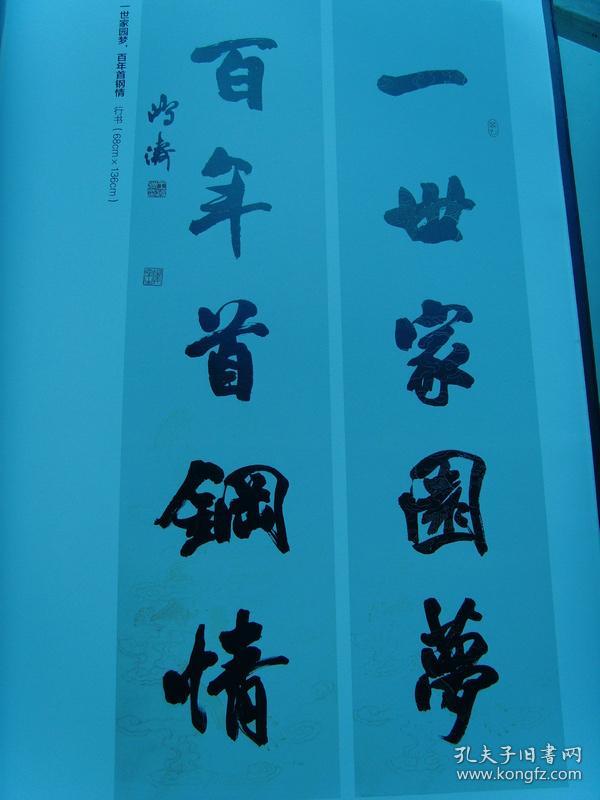 一世家園夢
百年首鋼情
鸣涛
一世家园梦，百年首钢情 行书（68cm×136cm）
孔夫子旧书网
www.kongfz.com